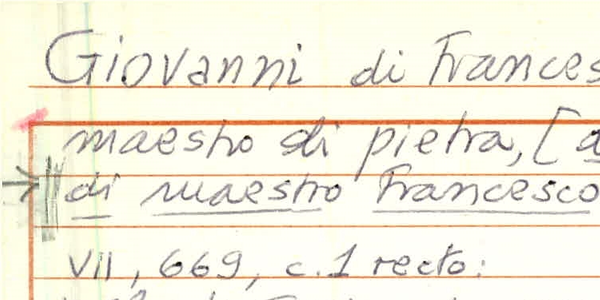 Giovanni di Frances
maestro di pietra, [a
di maestro Francesco
VII, 669, c.1 recto: